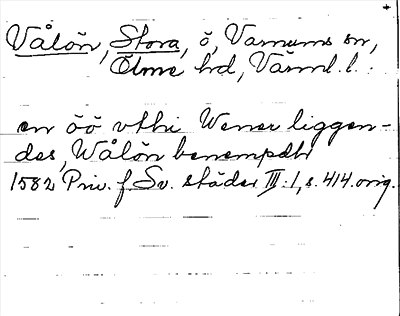 Vålön, Stora, ö, Varnums sn,
Ölme hd, Värml. l.
en öö vthi Wener liggen-
des, Wålön benempdh
1582 Priv. f. Sv. städer III:1, s. 414. orig.